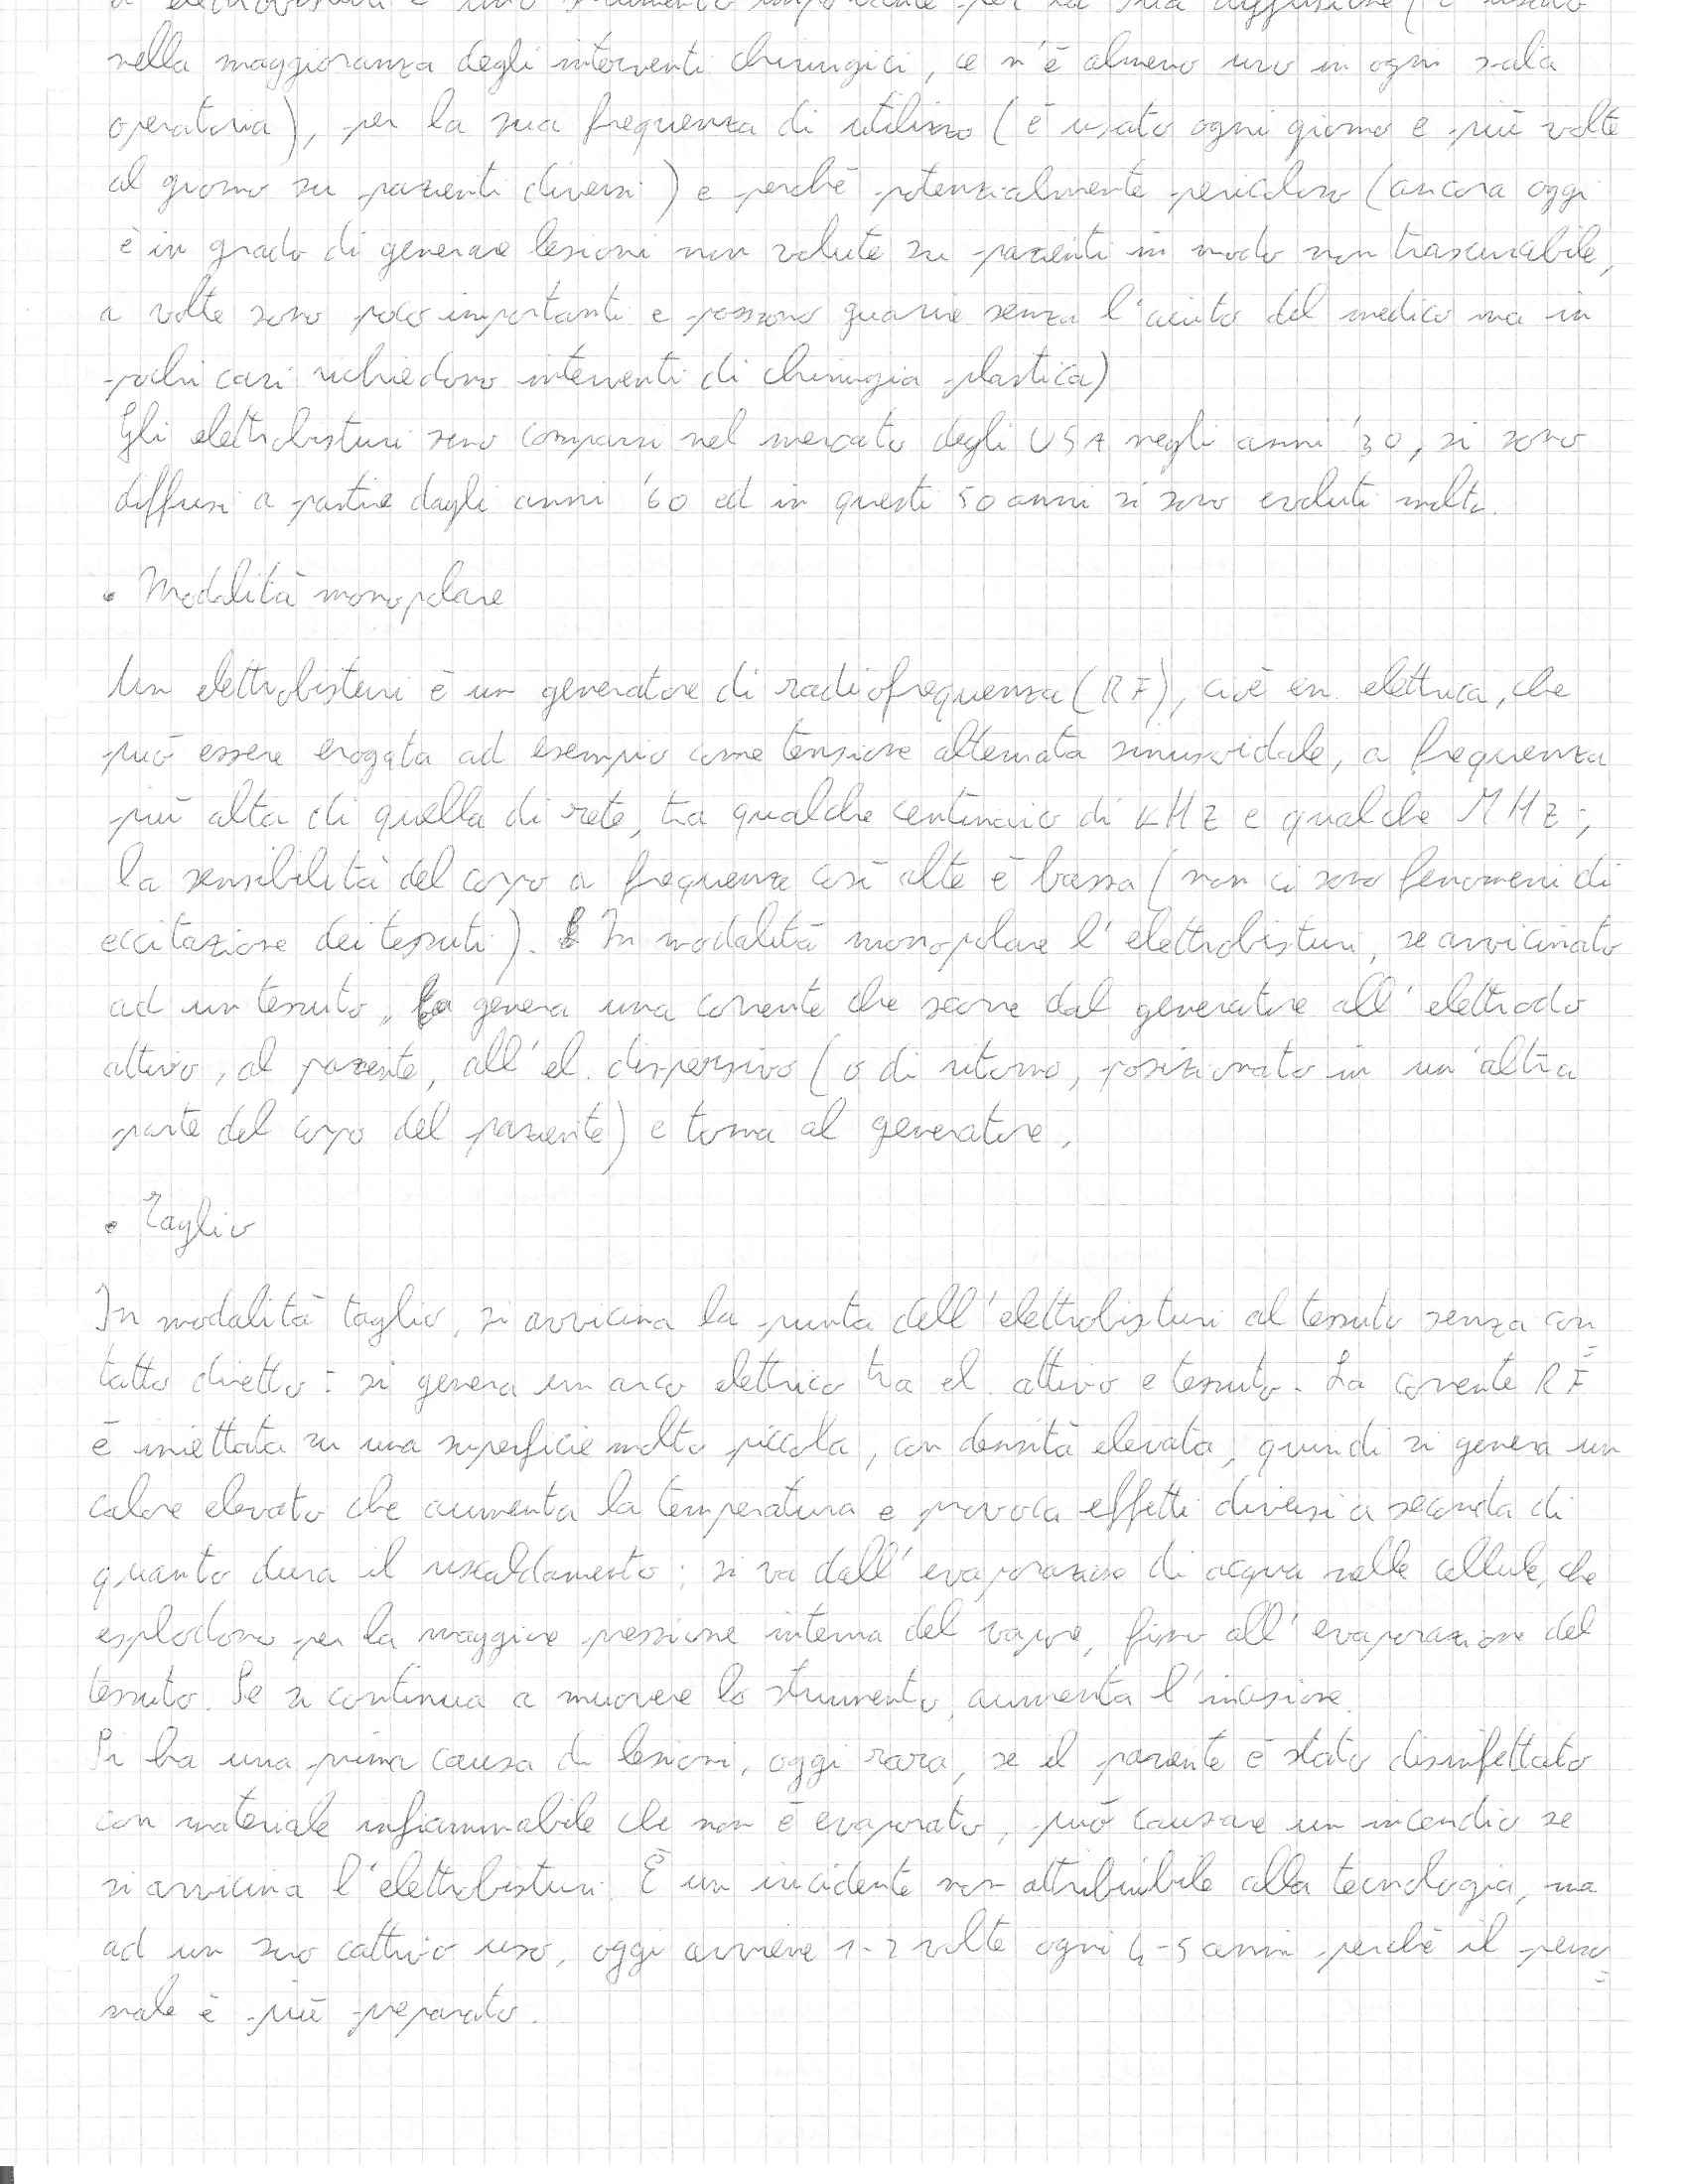 elettrobisturi è uno strumento importante per la sua diffusione (è usato
nella maggioranza degli interventi chirurgici, ce n'è almeno uno in ogni sala
operatoria), per la sua frequenza di utilizzo (è usato ogni giorno e più volte
al giorno su pazienti diversi) e perchè potenzialmente pericoloso (ancora oggi
è in grado di generare lesioni non volute su pazienti in modo non trascurabile,
a volte sono poco importanti e possono guarire senza l'aiuto del medico ma in
pochi casi richiedono interventi di chirurgia plastica)
Gli elettrobisturi sono comparsi nel mercato degli USA negli anni '30, si sono
diffusi a partire dagli anni '60 ed in questi 50 anni si sono evoluti molto.
• Modalità monopolare
Un elettrobisturi è un generatore di radiofrequenza (RF), cioè en. elettrica, che
può essere erogata ad esempio come tensione alternata sinusoidale, a frequenza
più alta di quella di rete, tra qualche centinaio di kHz e qualche MHz;
la sensibilità del corpo a frequenze così alte è bassa (non ci sono fenomeni di
eccitazione dei tessuti). In modalità monopolare l'elettrobisturi, se avvicinato
ad un tessuto, genera una corrente che scorre dal generatore all'elettrodo
attivo, al paziente, all'el. dispersivo (o di ritorno, posizionato in un'altra
parte del corpo del paziente) e torna al generatore.
• Taglio
In modalità taglio, si avvicina la punta dell'elettrobisturi al tessuto senza con=
tatto diretto: si genera un arco elettrico tra el. attivo e tessuto. La corrente RF
è iniettata su una superficie molto piccola, con densità elevata, quindi si genera un
calore elevato che aumenta la temperatura e provoca effetti diversi a seconda di
quanto dura il riscaldamento: si va dall'evaporazione di acqua nelle cellule, che
esplodono per la maggiore pressione interna del vapore, fino all'evaporazione del
tessuto. Se si continua a muovere lo strumento, aumenta l'incisione.
Si ha una prima causa di lesioni, oggi rara, se il paziente è stato disinfettato
con materiale infiammabile che non è evaporato, può causare un incendio se
si avvicina l'elettrobisturi. È un incidente non attribuibile alla tecnologia, ma
ad un suo cattivo uso, oggi avviene 1-2 volte ogni 4-5 anni perchè il perso=
nale è più preparato.